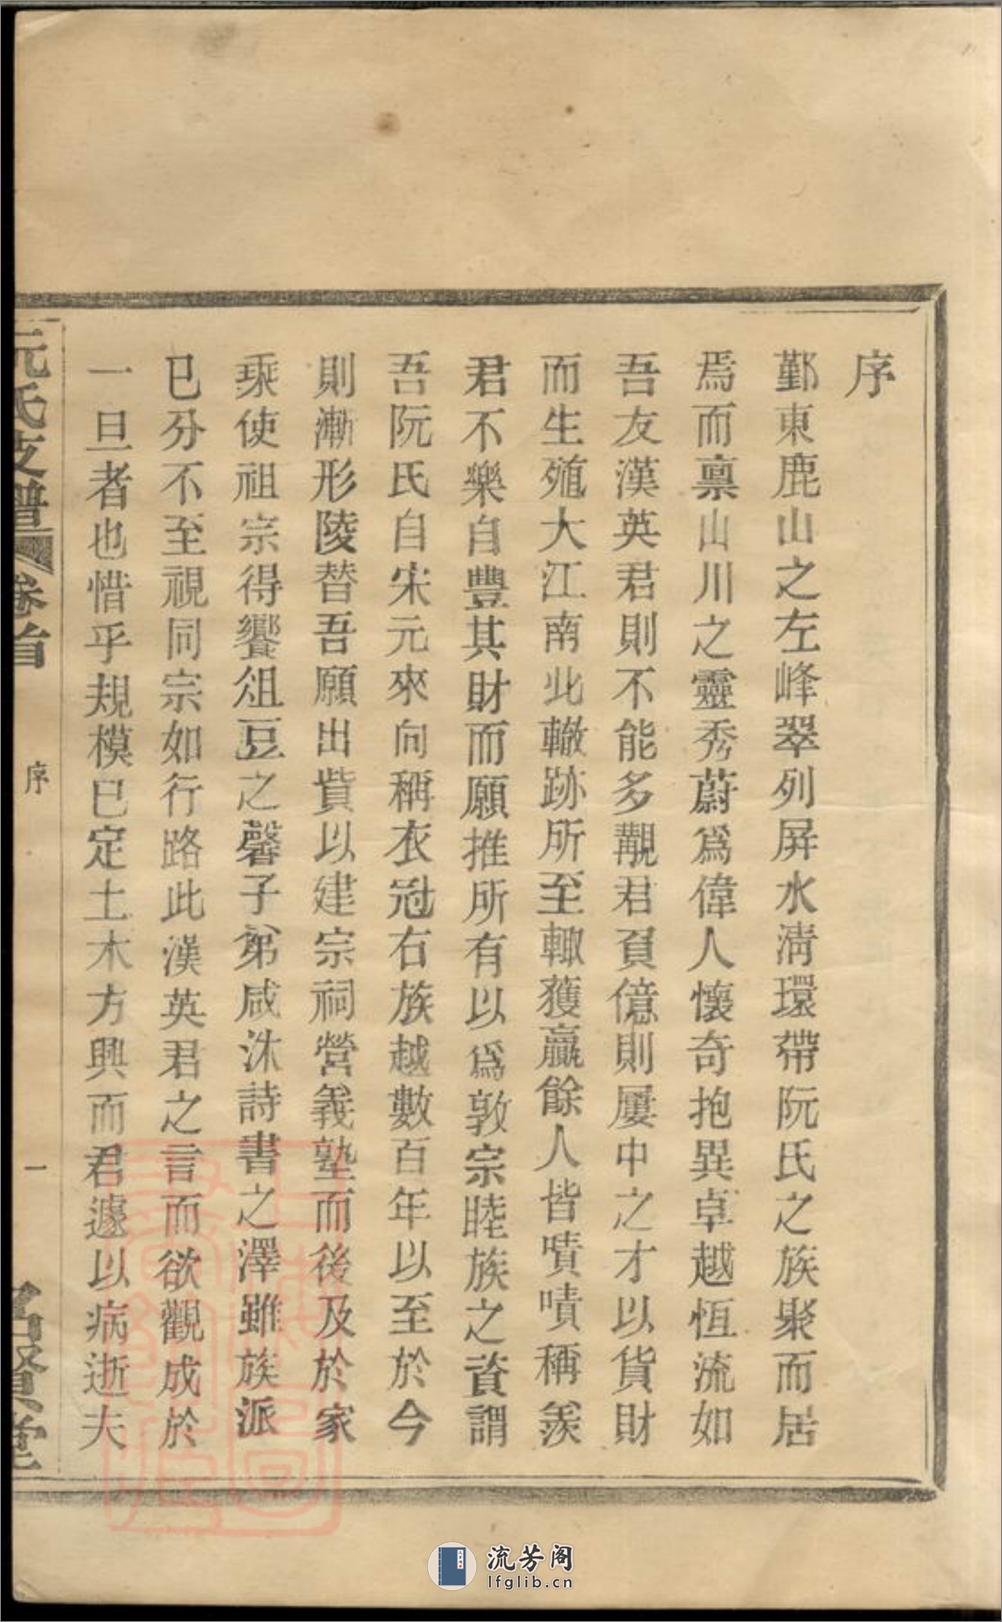 序
鄞東鹿山之左峰翠列屏水淸環帶阮氏之族聚而居
焉而稟山川之靈秀蔚爲偉人懷奇抱異卓越恆流如
吾友漢英君則不能多覯君負億則屢中之才以貨財
而生殖大江南北轍跡所至輙獲贏餘人皆嘖嘖稱羨
君不樂自豐其財而願推所有以爲敦宗睦族之資謂
吾阮氏自宋元來向稱衣冠右族越數百年以至於今
則漸形陵替吾願出貲以建宗祠營義塾而後及於家
乘使祖宗得饗俎豆之馨子弟咸沐詩書之澤雖族派
已分不至視同宗如行路此漢英君之言而欲觀成於
一旦者也惜乎規模已定土木方興而君遽以病逝夫
阮氏支譜
卷首
序
一
名賢堂
流芳阁
lfglib.cn